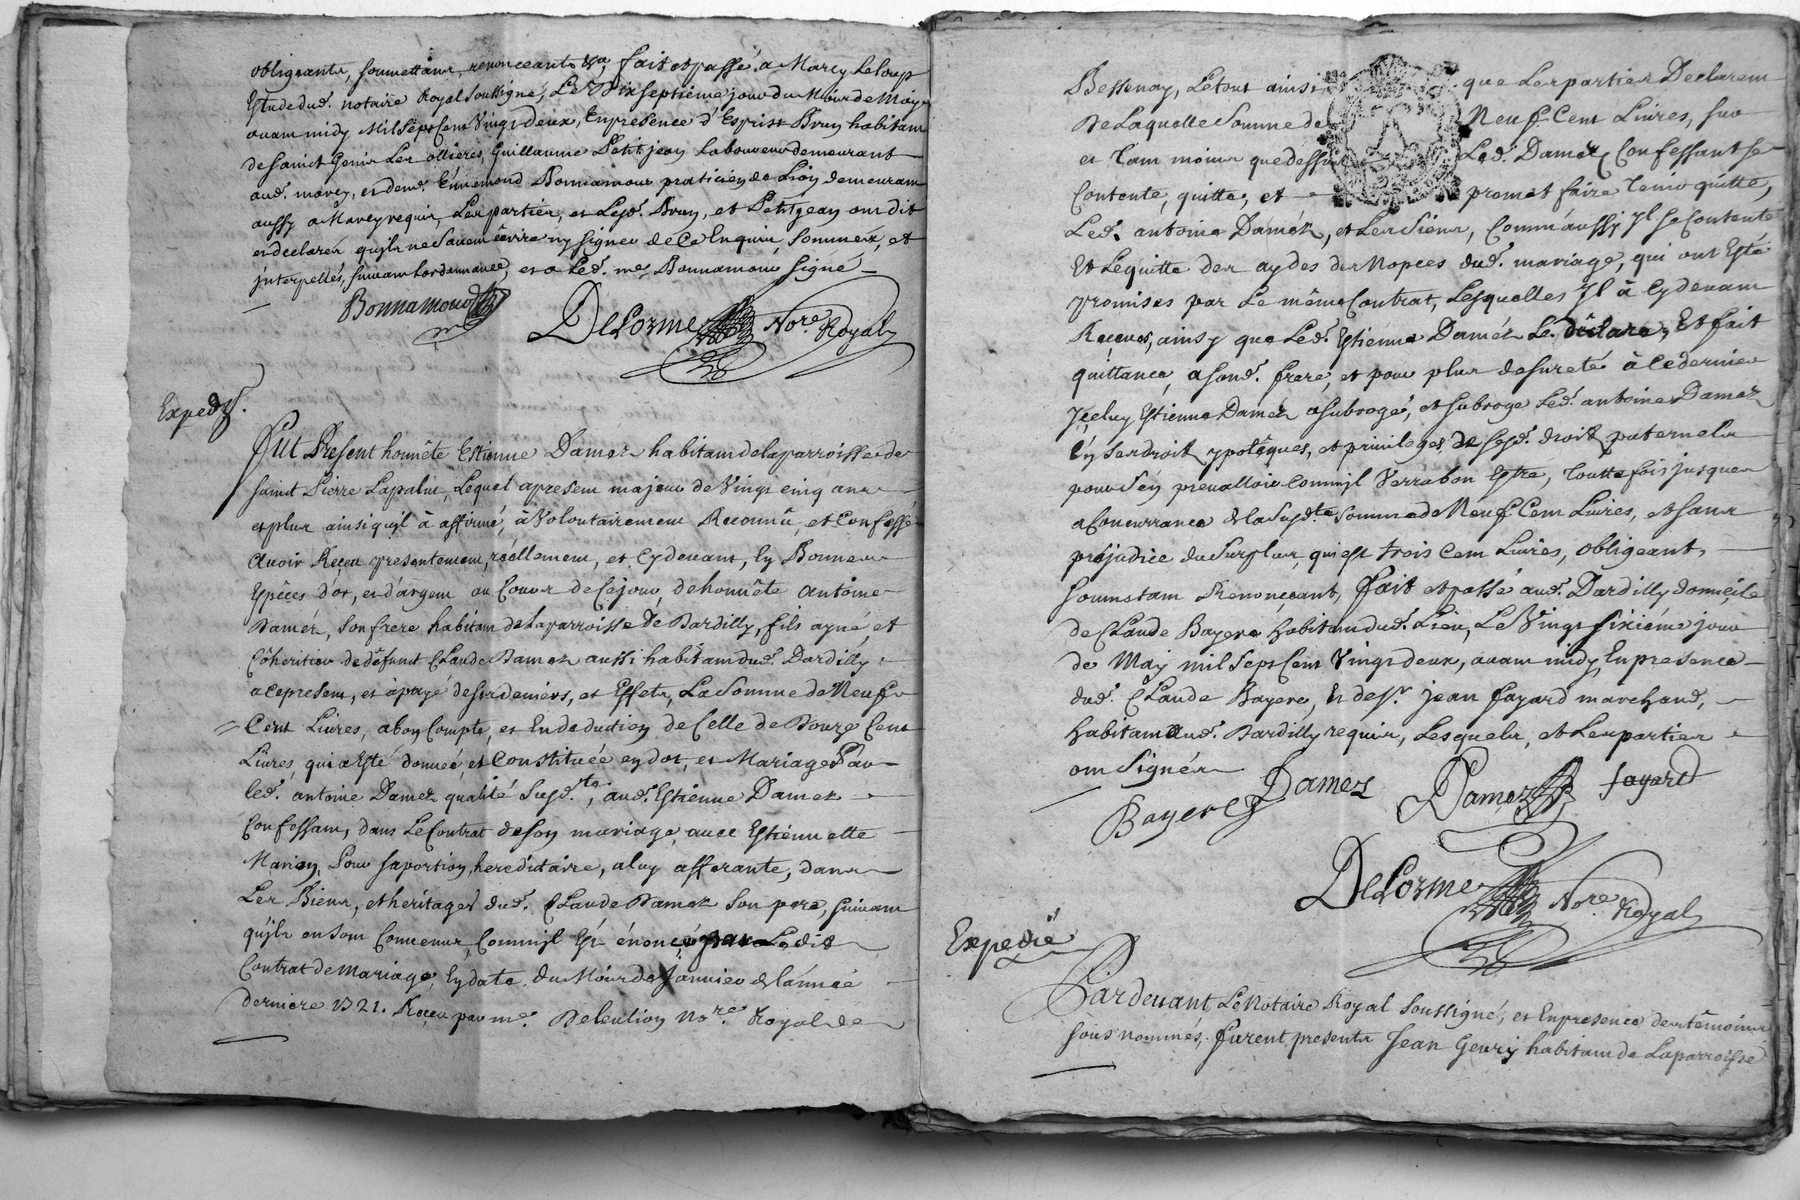 obligeants, soumettans, renonceants &a fait et passé a Marcy Le loup
Estude dud. notaire Royal soussigné, Le Dix septieme jour du Mois de May
avant midy Mil sept Cent Vingt deux, En presence d'Esprit Brun habitant
de sainct Genis Les ollieres, Guillaume Petit jean laboureur demeurant
aud. marcy, et de me. Ennemond Bonnamour praticien de Lion demeurant
aussy a Marcy requis, Les parties, et Lesd. Brun, et Petitjean ont dit
et declaré qu'ils ne savent écrire ny signer de Ce Enquis, sommés, et
jnterpellés, suivant Lordonnance, et a Led. me. Bonnamour signé
Bonnamour
DeLorme Nore. Royal
Exped.
Fut Present honnête Estienne Damez habitant de la parroisse de
sainct Pierre Lapalud, Lequel a present majeur de Vingt cinq ans
et plus ainsi qu'il à affirmé, à Volontairement Reconnû, et Confessé
avoir Reçeu presentement, réellement, et Cydevant, En Bonnes
Espèces d'or, et d'argent au Cours de Cejour, de honnête antoine
Damez, son frere habitant de la parroisse de Dardilly, fils ayné, et
Côheritier de défunct Claude Damez aussi habitant dud. Dardilly
a ce present, et à payé de ses deniers, et Effets, La Somme de Neuf
Cent Livres, a bon Compte, et En deduction de Celle de Douze Cent
Livres, qui a Esté donnée, et Constituée en dot, et Mariage Par
led. antoine Damez qualité susd.te, aud. Estienne Damez
Confessant, dans Le Contrat de son mariage avec Estiennette
Manin, Pour sa portion hereditaire, a luy afferante, dans
Les Biens, et héritages dud. Claude Damez son pere, suivant
qu'ils en sont Convenus, Comm'il Est énoncé par Ledit
Contrat de Mariage, En date du Mois de Janvier de l'année
derniere 1721. Reçeu par me. Delention Nore. Royal de
Bessenay, Le tout ainsi que Les parties Declarent
De Laquelle Somme de Neuf Cent Livres, sur
et tant moins que dessus Led. Damez Confessant se
Contente, quitte, et promet faire tenir quitte,
Led. antoine Damez, et Les Siens, Comm'aussy jl se Contente
Et Le quitte des aydes des Nopces dud. mariage, qui ont Esté
promises par Le même Contrat, Lesquelles jl à Cydevant
Reçeues, ainsy que Led. Estienne Damez Le déclare, Et fait
quittance, a sond. frere, et pour plus de sureté à Ce dernier
Jceluy Estienne Damez a subrogé, et subroge Led. antoine Damez
En ses droits ypotèques, et privileges de sesd. droits paternels
pour s'en prevalloir Comm'jl Verra bon Estre, touttefois jusques
a Concurrance de la susd.te somme de Neuf Cent Livres, et sans
préjudice du Surplus, qui est trois Cent Livres, obligeant,
soumetant Renonçeant, fait et passé aud. Dardilly domicile
de Claude Bayere habitant dud. Lieu, Le Vingt sixiéme jour
de May mil sept Cent Vingt deux, avant midy, En presence
dud. Claude Bayere, Et de sr. jean fayard marchand,
habitant aud. Dardilly requis, Lesquels, et Les parties
ont signér
Bayere Damez Damez fayard
DeLorme Nore. Royal
Expedié
Pardevant Le Notaire Royal soussigné, et En presence des témoins
sous nommés, furent presents Jean Genis habitant de La parroisse